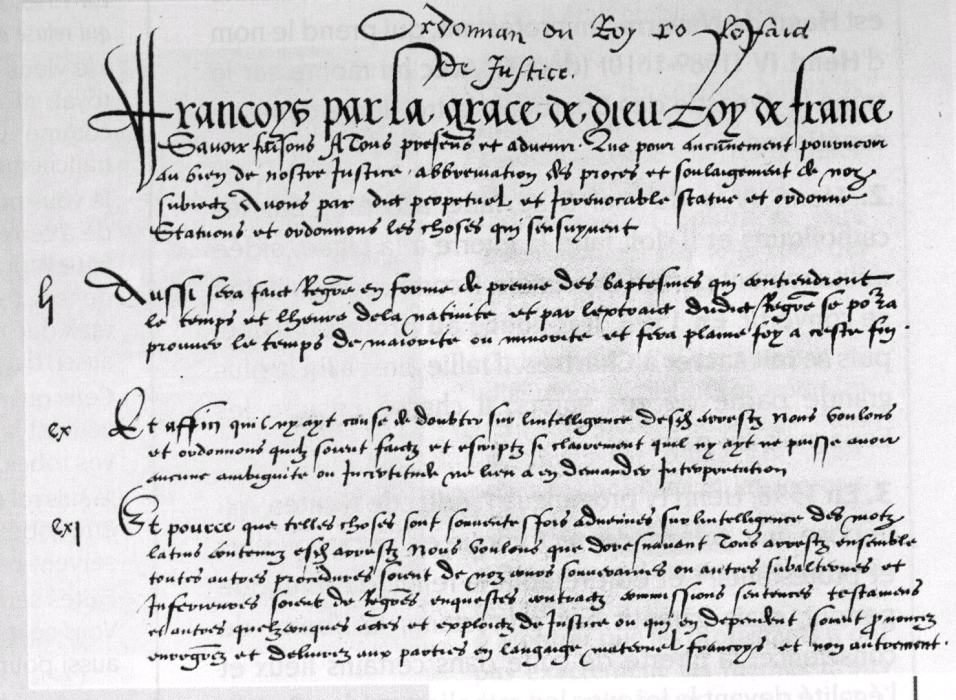 Ordonnan du Roy sur le faict
De Justice.
Francoys par la grace de dieu Roy de france
Savoir faisons A Tous presens et advenir. Que pour aucunement pourveoir
au bien de nostre Justice. abbreviation des proces et soulaigement de noz
subiectz Avons par edict perpetuel et Irrevocable statue et ordonne
Statuons et ordonnons les choses qui sensuyvent
li Aussi sera faict Regre en forme de preuve des baptesmes qui contiendront
le temps et lheure dela nativite et par lextraict dudict Regre se porra
prouver le temps de maiorite ou minorite et fera plaine foy a ceste fin.
cx Et affin quil ny ayt cause de doubter sur lintelligence desdz arrestz Nous voulons
et ordonnons quilz soient faictz et escriptz si clairement quil ny ayt ne puisse avoir
aucune ambiguite ou Incertitude ne lieu a en demander Interpretation
cxi Et pource que telles choses sont souventesfois advenues sur lintelligence des motz
latins contenuz esdz arrestz Nous voulons que doresnavant Tous arrestz ensemble
toutes autres procedures soient de noz cours souveraines ou autres subalternes et
Inferieures soient de Regres enquestes contractz commissions sentences testamens
et autres quelzconques actes et exploictz de Justice ou qui en dependent soient pnoncez
enregrez et delivrez aux parties en langaige maternel francoys et non autrement.